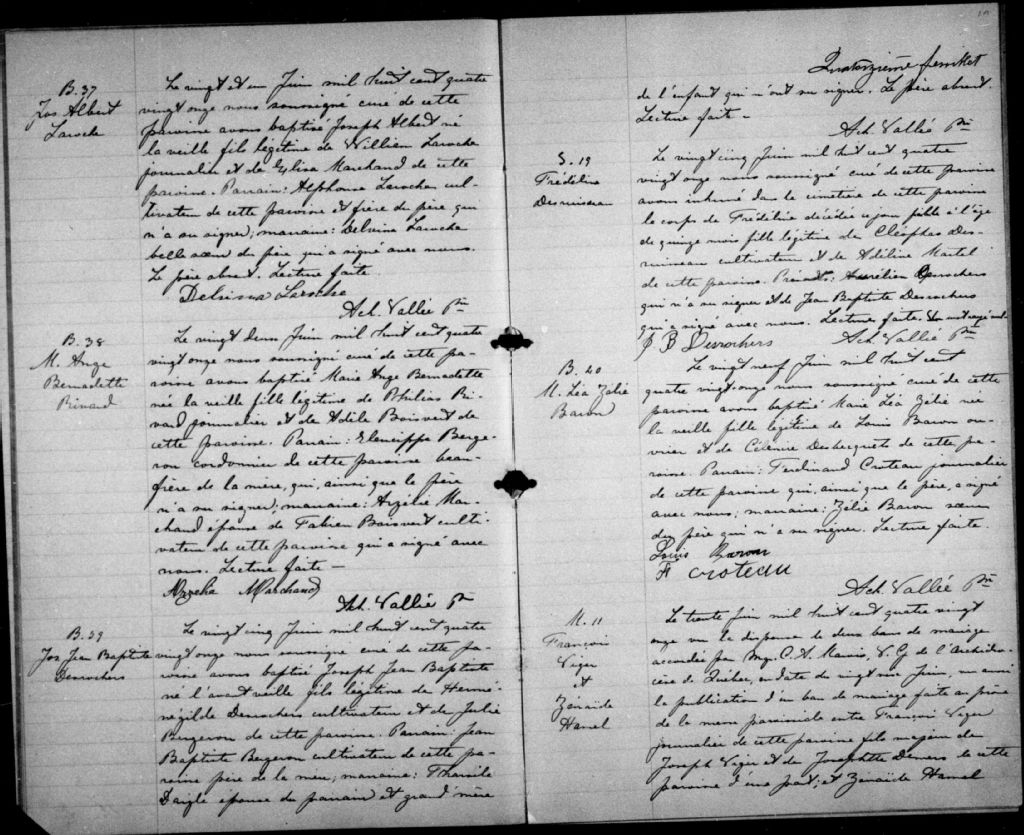 B. 37
Jos Albert
Laroche
Le vingt et un Juin mil huit cent quatre
vingt onze nous soussigné curé de cette
paroisse avons baptisé Joseph Albert né
la veille fils légitime de William Laroche
journalier et de Eliza Marchand de cette
paroisse. Parrain: Alphonse Laroche cul-
tivateur de cette paroisse et frère du père qui
n'a su signer; marraine: Delvina Laroche
belle soeur du père qui a signé avec nous.
Le père absent. Lecture faite
Delvina Laroche
Ach. Vallée Ptre
B. 38
M. Ange
Bernadette
Rivard
Le vingt deux Juin mil huit cent quatre
vingt onze nous soussigné curé de cette pa-
roisse avons baptisé Marie Ange Bernadette
née la veille fille légitime de Philias Ri-
vard journalier et de Adèle Boisvert de
cette paroisse. Parrain: Eleucippe Berge-
ron cordonnier de cette paroisse beau-
frère de la mère, qui, ainsi que le père
n'a su signer; marraine: Arzélie Mar-
chand épouse de Fabien Boisvert culti-
vateur de cette paroisse qui a signé avec
nous. Lecture faite —
Marchand
Ach. Vallée Ptre
B. 39
Jos Jean Baptiste
Desrochers
Le vingt cinq Juin mil huit cent quatre
vingt onze nous soussigné curé de cette pa-
roisse avons baptisé Joseph Jean Baptiste
né l'avant veille fils légitime de Hermé-
négilde Desrochers cultivateur et de Julie
Bergeron de cette paroisse. Parrain: Jean
Baptiste Bergeron cultivateur de cette pa-
roisse père de la mère; marraine: Tharsile
Daigle épouse du parrain et grand'mère
Quatorzième feuillet
de l'enfant qui n'ont su signer. Le père absent.
Lecture faite —
Ach. Vallée Ptre
S. 19
Frédéline
Desruisseau
Le vingt cinq Juin mil huit cent quatre
vingt onze nous soussigné curé de cette paroisse
avons inhumé dans le cimetière de cette paroisse
le corps de Frédéline décédée à l'âge
de quinze mois fille légitime de Cléophas Des-
ruisseau cultivateur et de Adéline Martel
de cette paroisse. Présents: Aurélien Desrochers
qui n'a su signer et de Jean Baptiste Desrochers
qui a signé avec nous. Lecture faite.
J. B Desrochers
Ach. Vallée Ptre
B. 40
M. Léa Zélie
Baron
Le vingt neuf Juin mil huit cent
quatre vingt-onze nous soussigné curé de cette
paroisse avons baptisé Marie Léa Zélie née
la veille fille légitime de Louis Baron ou-
vrier et de Célénire Desbecquets de cette pa-
roisse. Parrain: Ferdinand Croteau journalier
de cette paroisse qui, ainsi que le père, a signé
avec nous; marraine: Zélie Baron soeur
du père qui n'a su signer. Lecture faite.
Louis Baron
F croteau
Ach. Vallée Ptre
M. 11
François
Viger
et
Zénaïde
Hamel
Le trente Juin mil huit cent quatre vingt
onze vu la dispense de deux bans de mariage
accordée par Mgr. C. A. Marois, V. G de l'Archidio-
cèse de Québec, en date du vingt six Juin, vu aussi
la publication d'un ban de mariage faite au prône
de la messe paroissiale entre François Viger
journalier de cette paroisse fils majeur de
Joseph Viger et de Josephte Demers de cette
paroisse d'une part; et Zénaïde Hamel